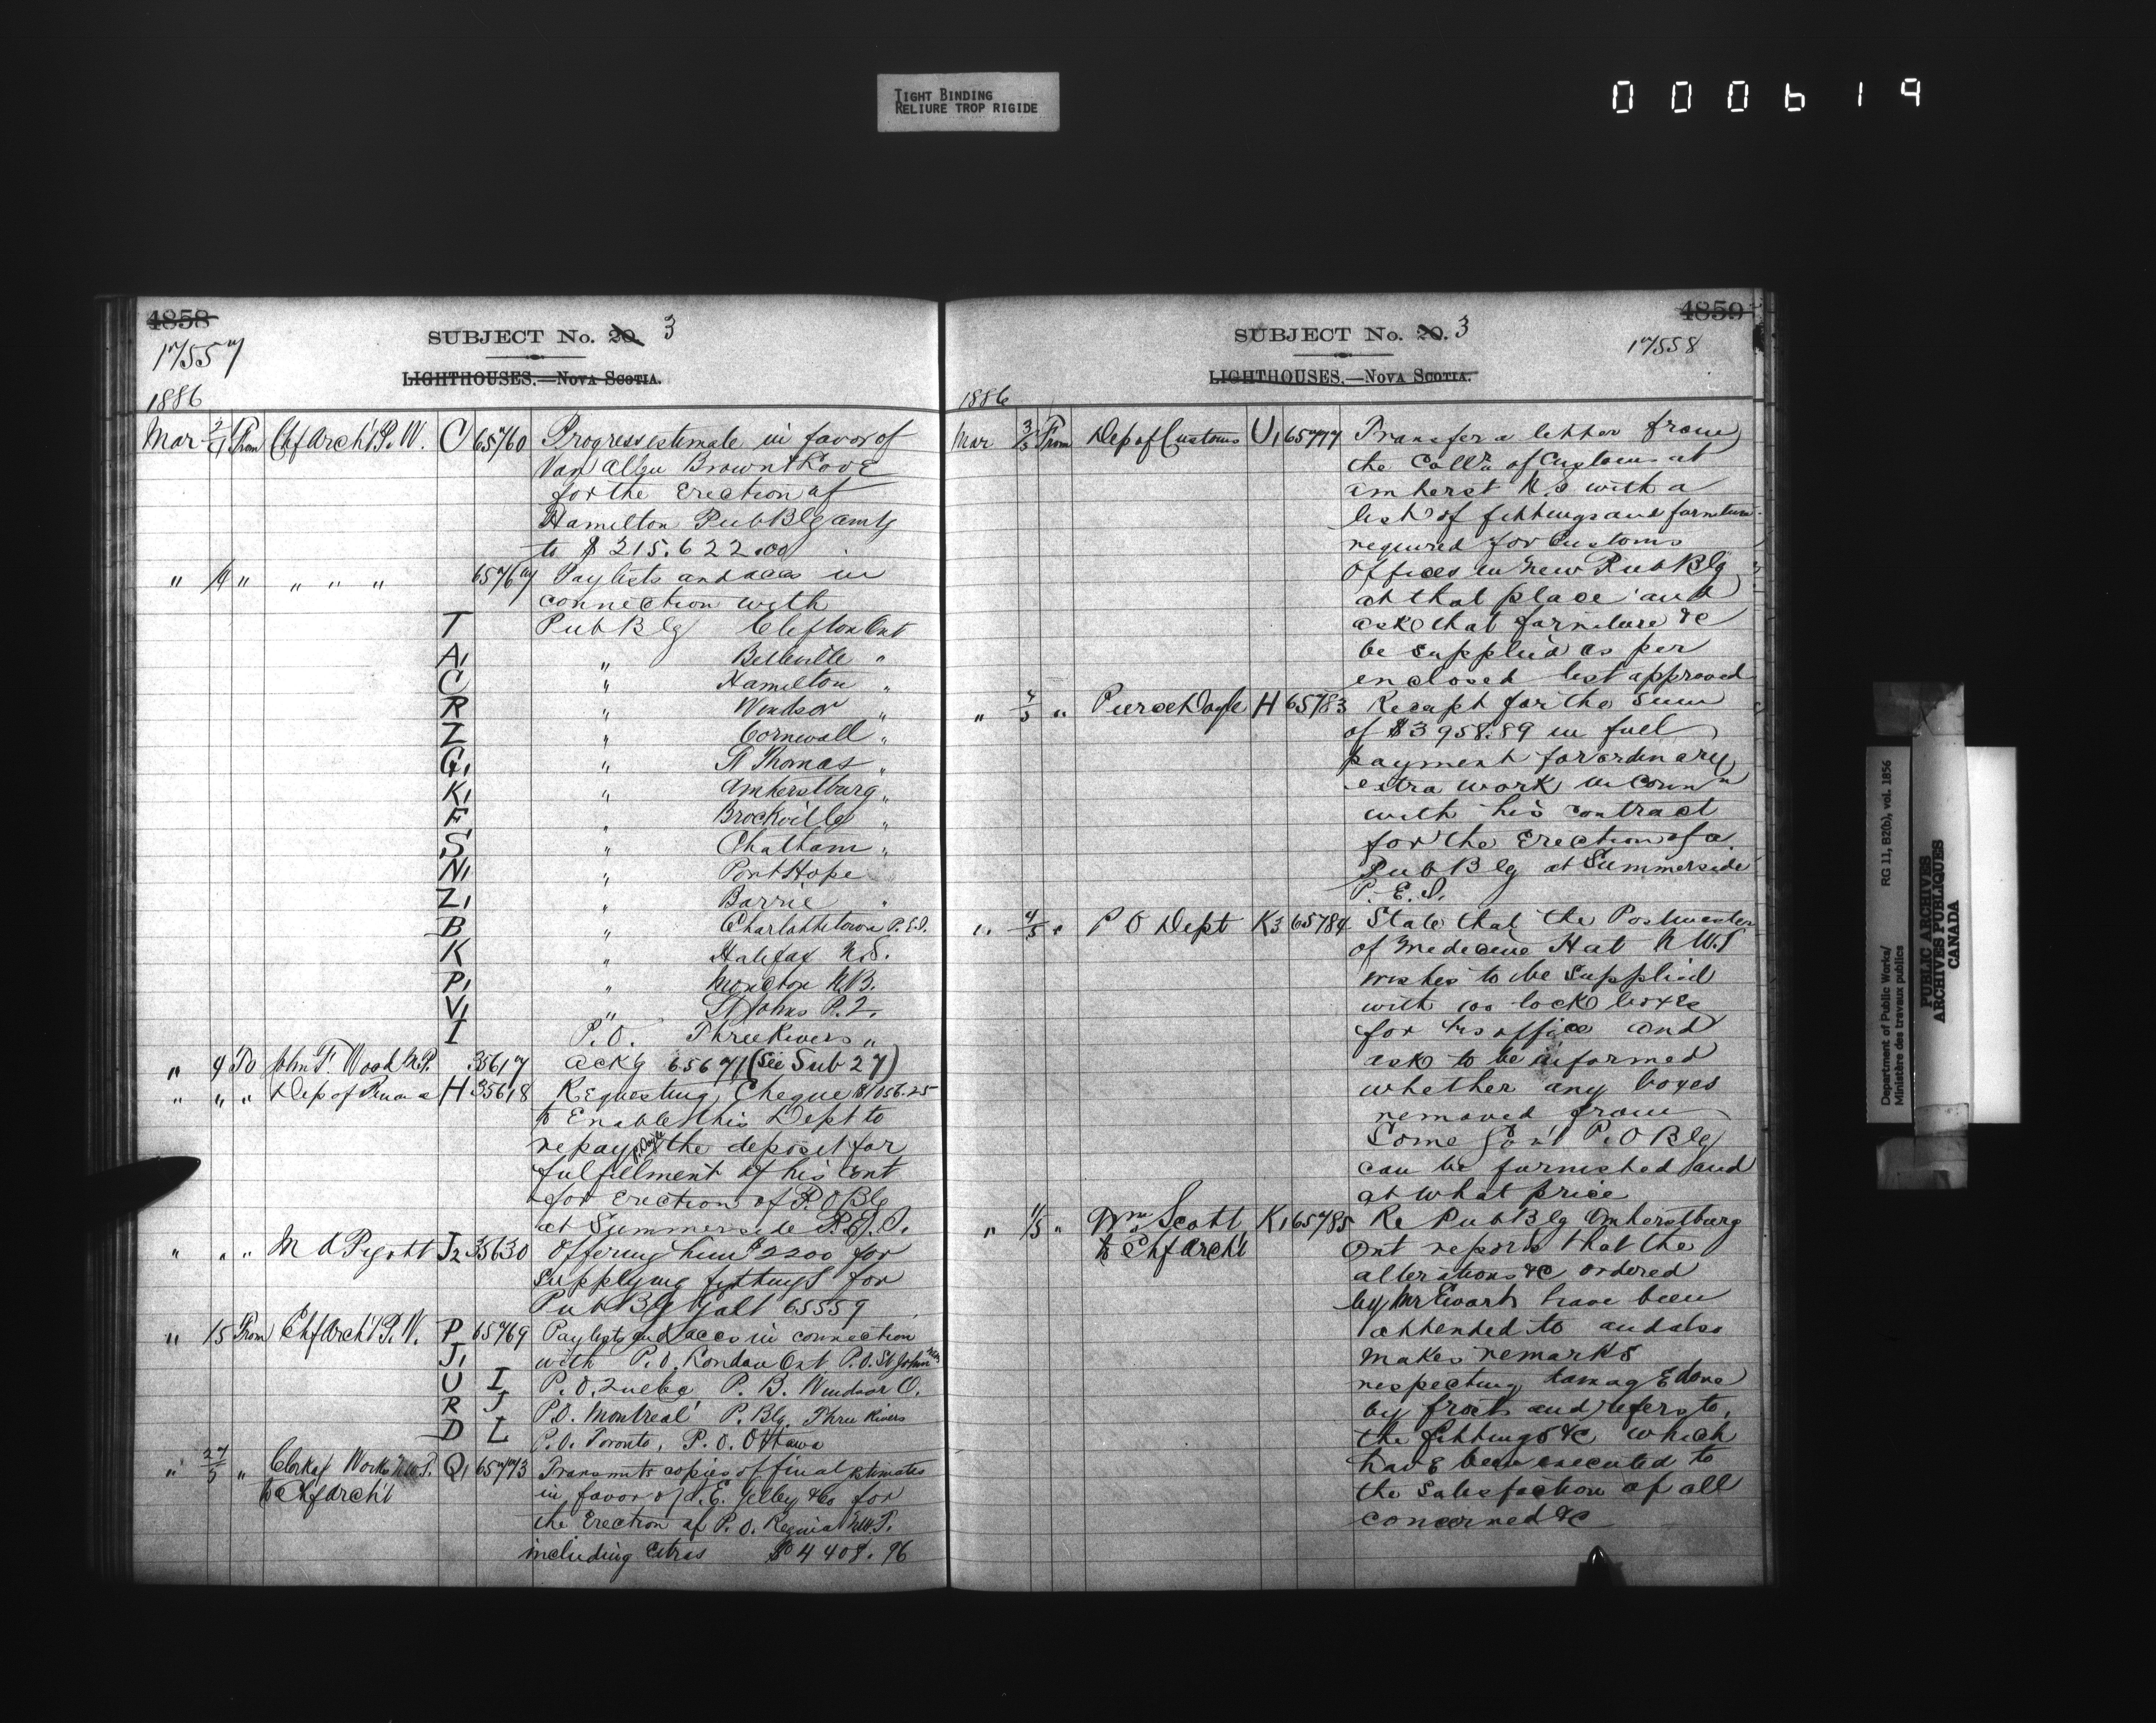 TIGHT BINDING
RELIURE TROP RIGIDE
000619
4858
17557
SUBJECT No. 20. 3
LIGHTHOUSES.—NOVA SCOTIA.
1886
Mar 2/4 From Chf Arch't P.W. C 65760 Progress estimate in favor of
Van Allen Brown & Love
for the Erection of
Hamilton Pub Blg amtg
to $215.622.00
" 4 " " " " 65767 Paylists and accs in
connection with
T Pub Blg Clifton Ont
A1 " Belleville "
C " Hamilton "
R " Windsor "
Z " Cornwall "
G1 " St Thomas "
K1 " Amherstburg "
F " Brockville "
S " Chatham "
N1 " Port Hope
Z1 " Barrie "
B " Charlottetown P.E.I.
K " Halifax N.S.
P1 " Moncton N.B.
V1 " St Johns P.Q.
I P.O. Three Rivers "
" 4 To John F. Wood M.P. 35617 Ackg 65671 (See Sub 27)
" " " Dep of Finance H 35618 Requesting Cheque $1056.25
to Enable this Dept to
repay P. Doyle the deposit for
fulfillment of his Cont
for Erection of P.O Blg
at Summerside P.E.I.
" " " M A Pigott J2 35630 Offering him $2200 for
supplying fittings for
Pub Blg Galt 65559
" 15 From Chf Arch't P.W. P 65769 Paylists and accs in connection
J1 with P.O. London Ont P.O. St John
U I P.O. Quebec P.B. Windsor O.
R J P.O. Montreal P. Blg. Three Rivers
D L P.O. Toronto, P.O. Ottawa
" " Clerk of Works N.W.T. Q1 65773 Transmits copies of final Estimates
to Chf Arch't in favor of E. Gelley & Co for
the Erection of P.O. Regina N.W.T.
including Extras $4408.96
4859
SUBJECT No. 20. 3
17558
LIGHTHOUSES.—NOVA SCOTIA.
1886
Mar 3/5 From Dep of Customs U1 65777 Transfer a letter from
the Coll'r of Customs at
Amherst N.S with a
list of fittings and furniture
required for Customs
Offices in New Pub Blg
at that place and
ask that furniture &c
be supplied as per
enclosed list approved
" " Pierce Doyle H 65783 Receipt for the sum
of $3958.89 in full
payment for ordinary
extra work in Conn'n
with his contract
for the Erection of a
Pub Blg at Summerside
P.E.I.
" 4/5 " P O Dept K3 65784 State that the Postmaster
of Medicine Hat N.W.T
wishes to be supplied
with 100 lock boxes
for his office and
ask to be informed
whether any boxes
removed from
Some P.O Blg
can be furnished and
at what price
" " Wm Scott K1 65785 Re Pub Blg Amherstburg
to Chf Arch't Ont reports that the
alterations &c ordered
by Mr Ewart have been
attended to and also
makes remarks
respecting damage done
by frost and refers to
the fittings &c which
have been executed to
the satisfaction of all
concerned &c
Department of Public Works/ RG 11, B2(b), vol. 1856
Ministère des travaux publics
PUBLIC ARCHIVES
ARCHIVES PUBLIQUES
CANADA